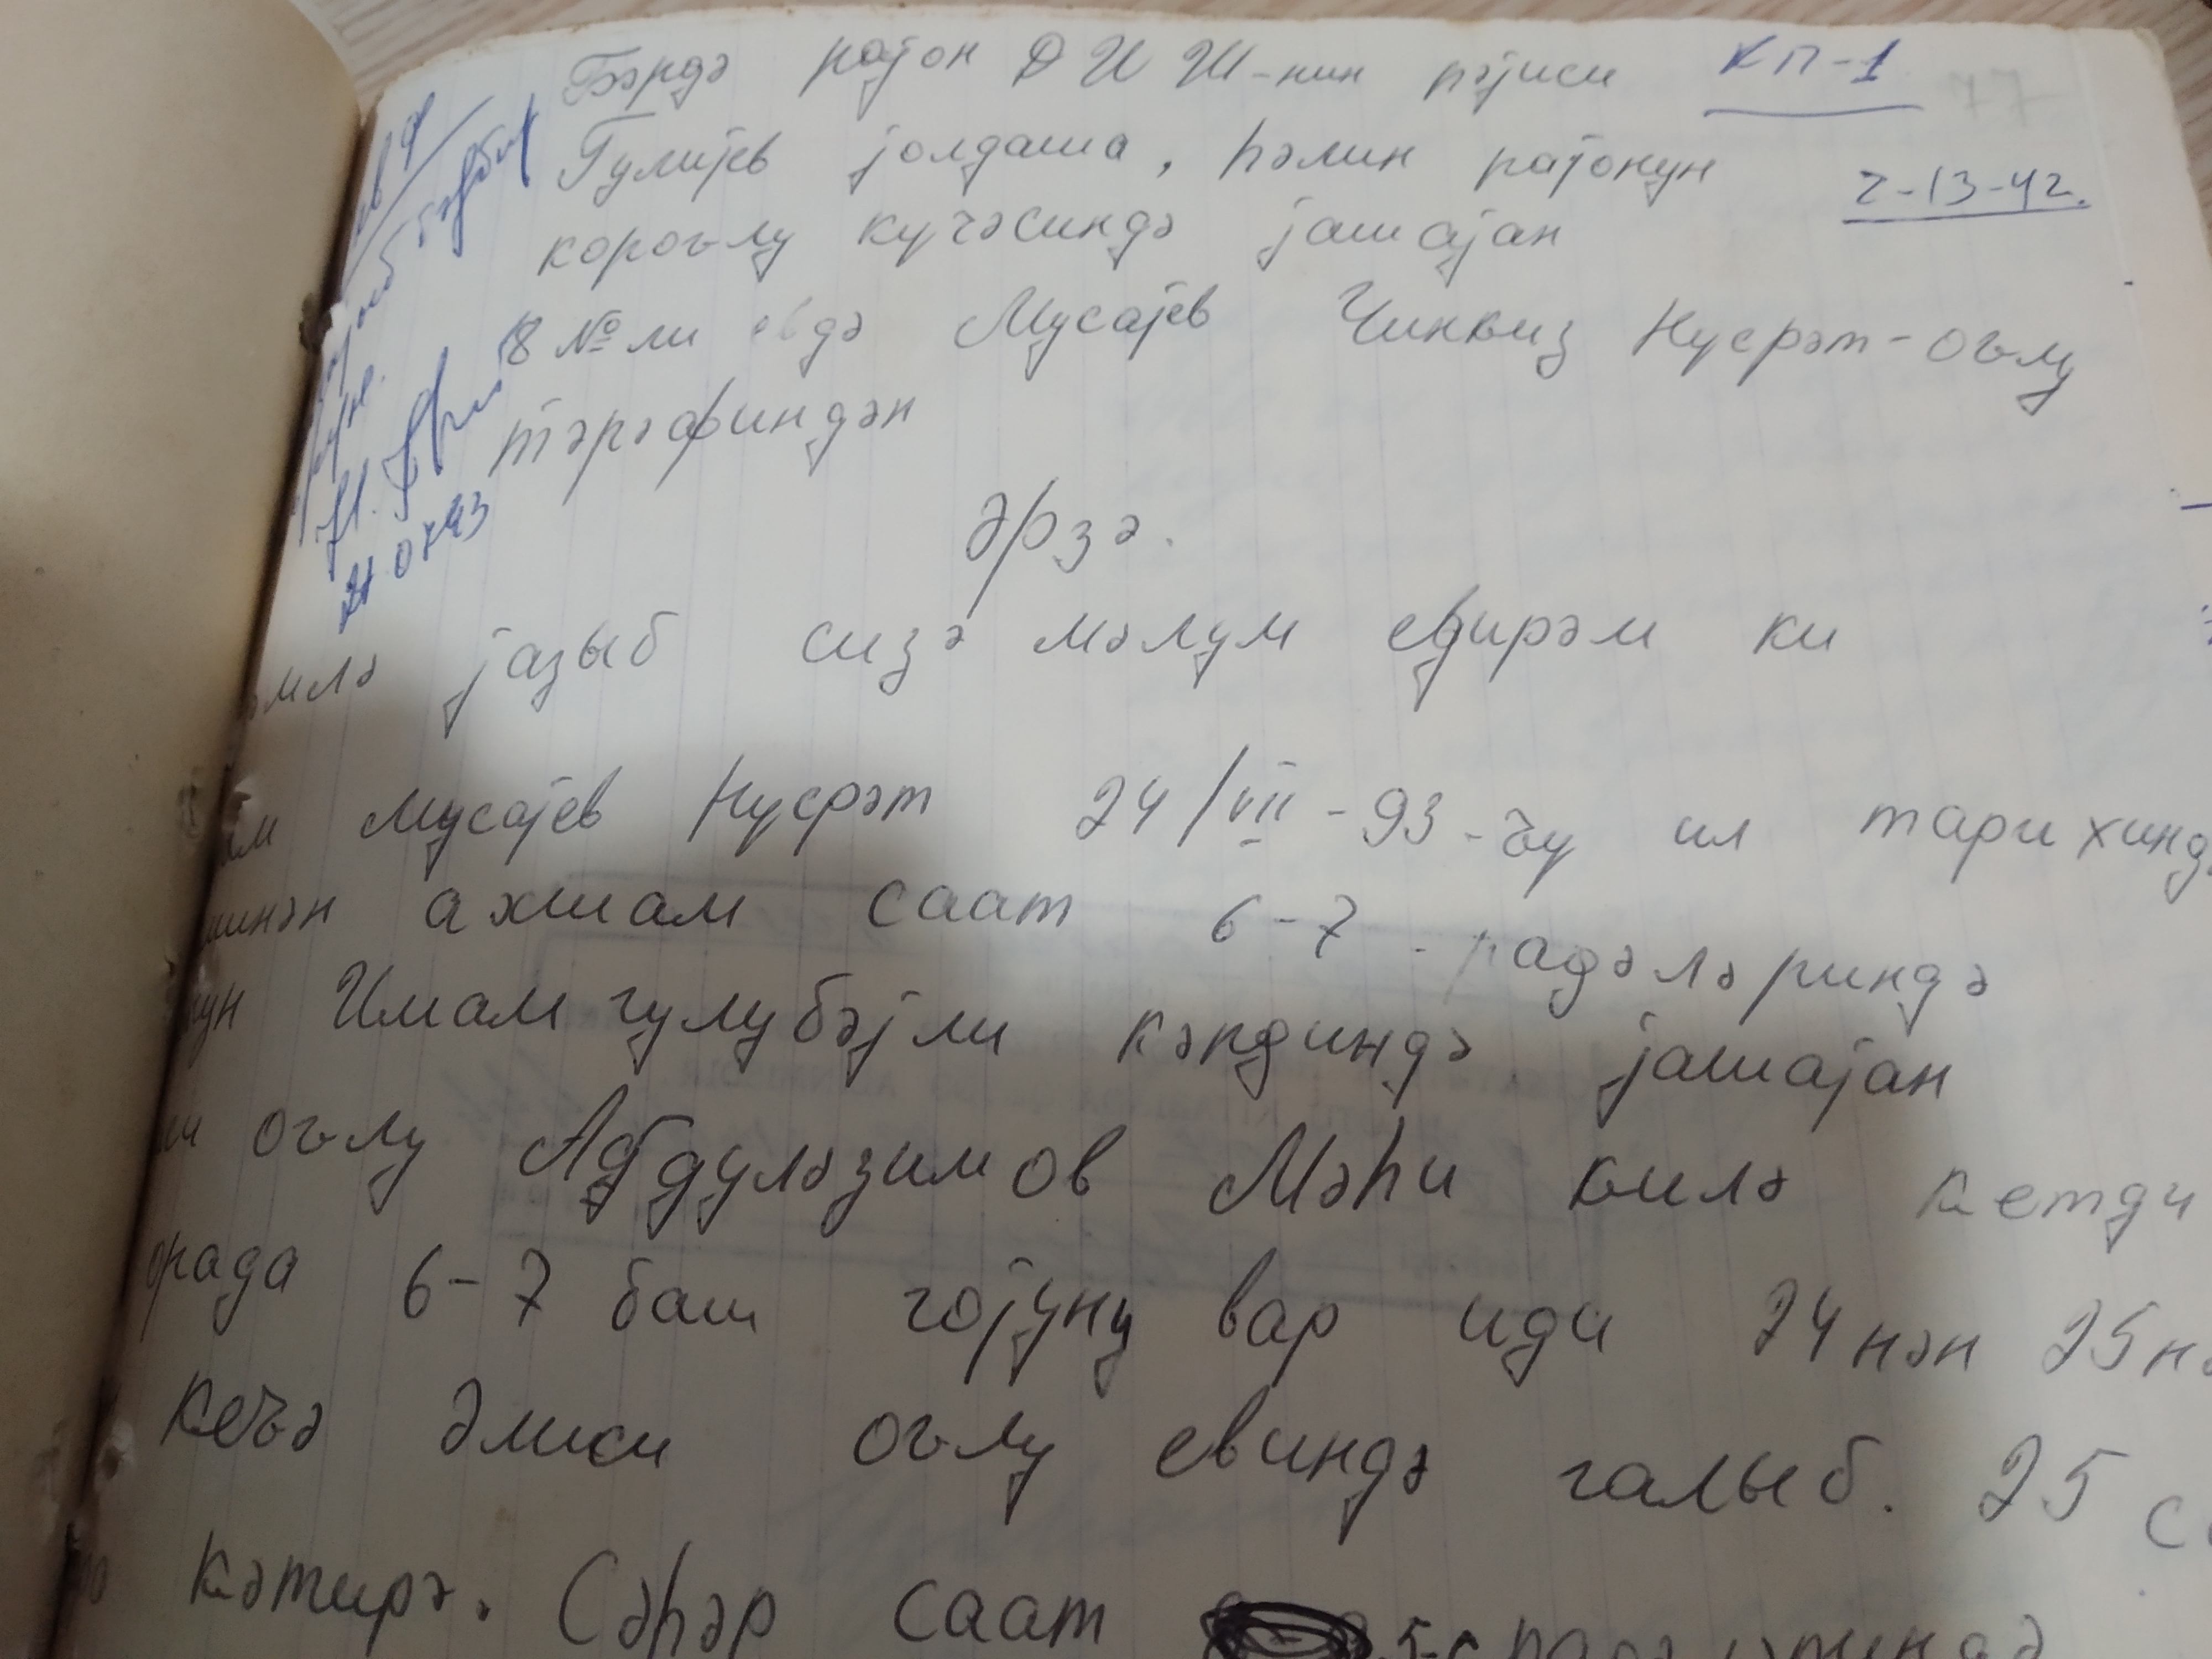 Бәрдә рајон Д И Ш-нин рәјиси КП-1
77
Гулијев јолдаша, һәмин рајонун
2-13-42.
короғлу күчәсиндә јашајан
18 №ли евдә Мусајев Чинҝиз Нүсрәт-оғлу
тәрәфиндән
Әрзә.
21.07.93
јазыб сизә мәлум едирәм ки
Мусајев Нүсрәт 24/VII-93-ҹү ил тарихиндә
ахшам саат 6-7 радәләриндә
Имамгулубәјли кәндиндә јашајан
оғлу Абдуләзимов Мәһи ҝилә ҝетди
орада 6-7 баш гојуну вар иди 24нән 25нә
ҝеҹә әмиси оғлу евиндә галыб. 25
ҝәтирә. Сәһәр саат